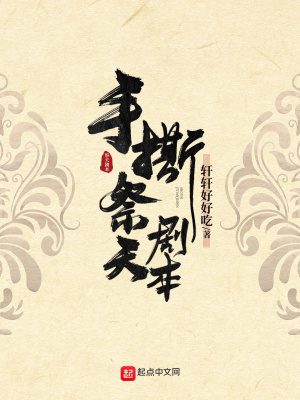 手撕
祭天
剧本
轩轩好好吃 著
起点中文网